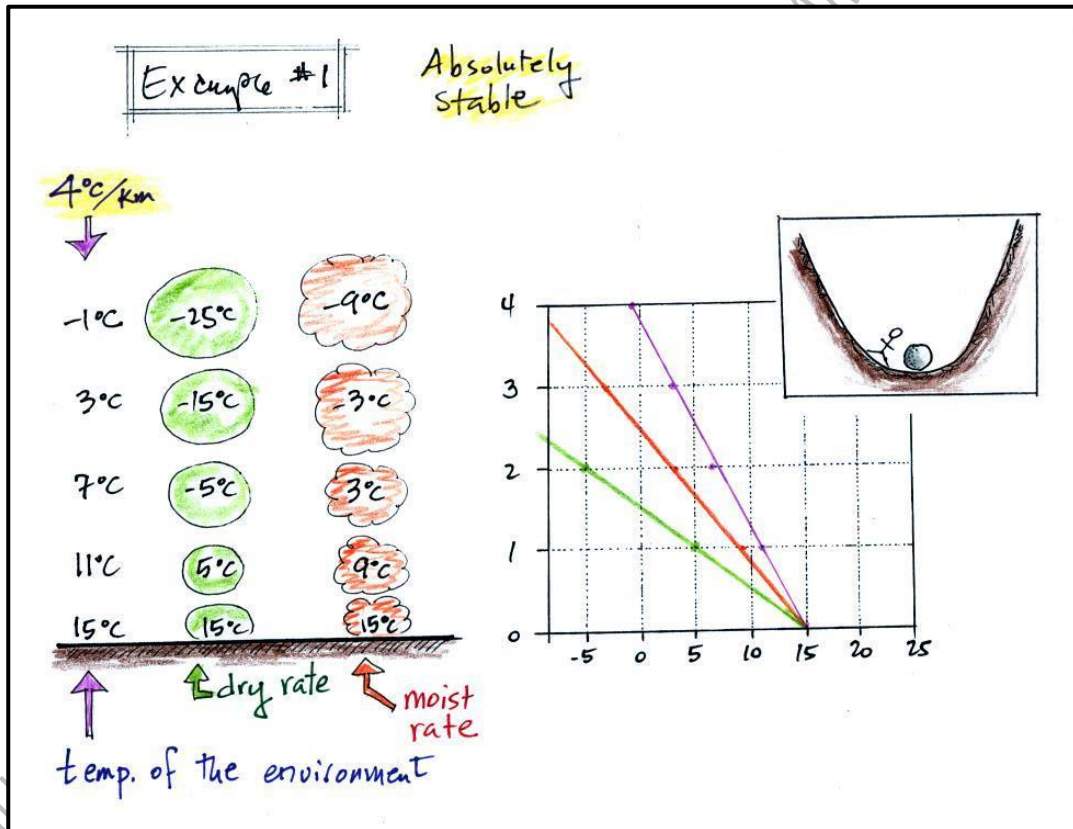 Example #1
Absolutely
stable
4°C/km
-1°C -25°C -9°C
3°C -15°C -3°C
7°C -5°C 3°C
11°C 5°C 9°C
15°C 15°C 15°C
dry rate
moist
rate
temp. of the environment
4
3
2
1
0
-5 0 5 10 15 20 25